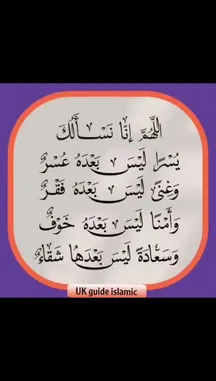 اللَّهُمَّ إِنَّا نَسْأَلُكَ
يُسْرًا لَيْسَ بَعْدَهُ عُسْرٌ
وَغِنًى لَيْسَ بَعْدَهُ فَقْرٌ
وَأَمْنًا لَيْسَ بَعْدَهُ خَوْفٌ
وَسَعَادَةً لَيْسَ بَعْدَهَا شَقَاءٌ
UK guide islamic